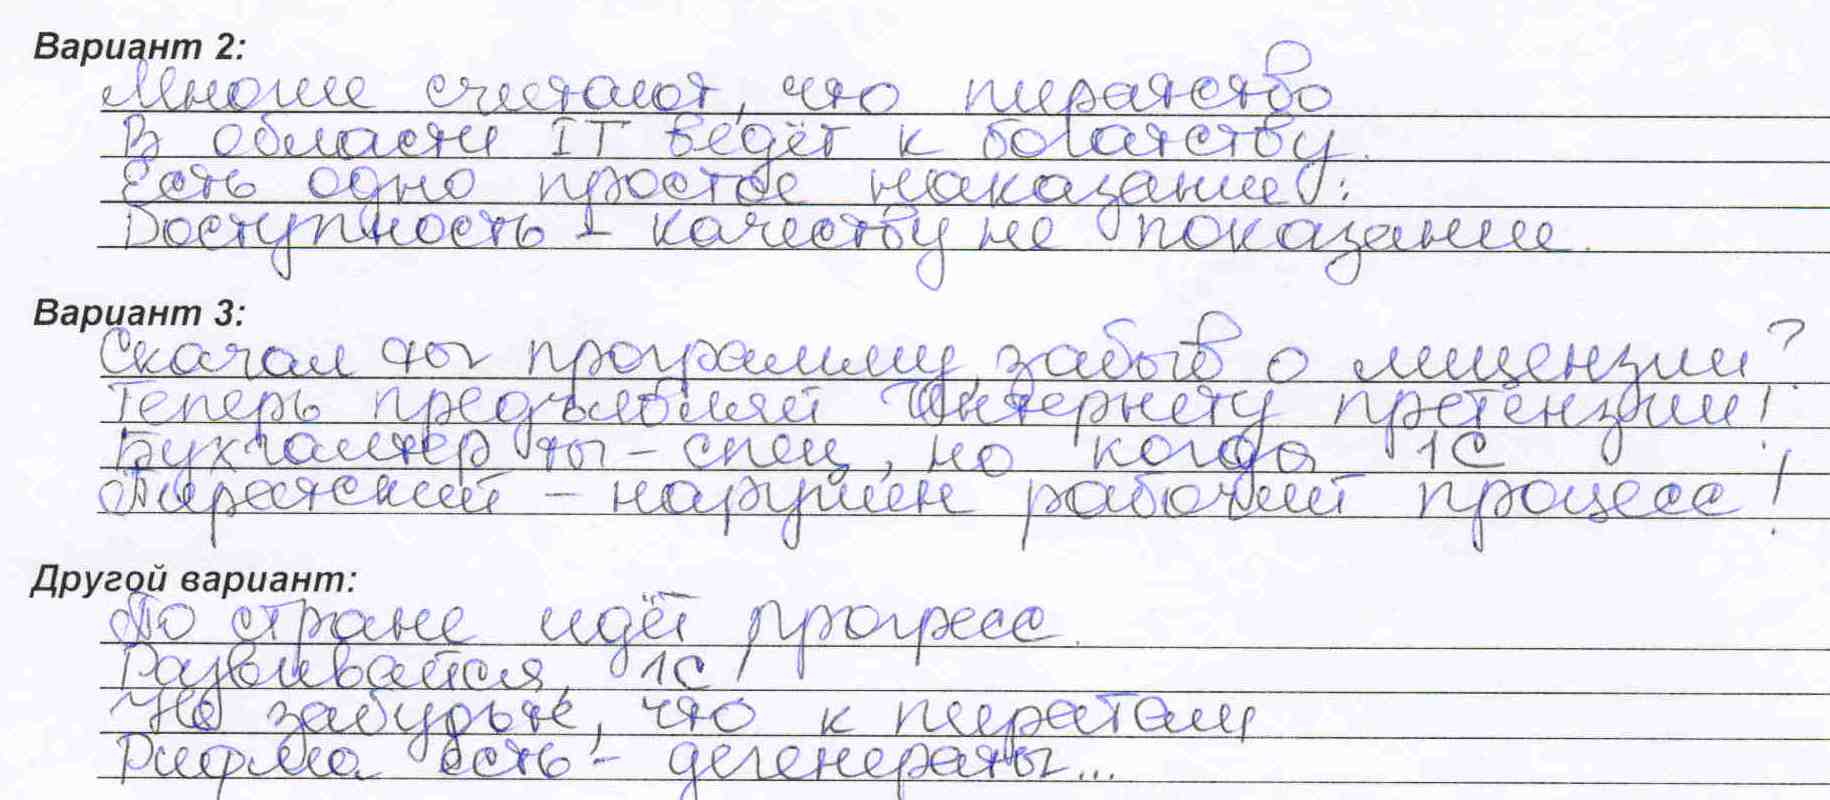 Вариант 2:
Многие считают, что пиратство
В области IT ведёт к богатству.
Есть одно простое наказание:
Доступность – качеству не показание.
Вариант 3:
Скачал ты программу, забыв о лицензии?
Теперь предъявляй Интернету претензии!
Бухгалтер ты – спец, но когда 1С
Пиратский – нарушен рабочий процесс!
Другой вариант:
По стране идёт прогресс.
Развивайся, 1С!
Не забудьте, что к пиратам
Рифма есть – дегенераты...